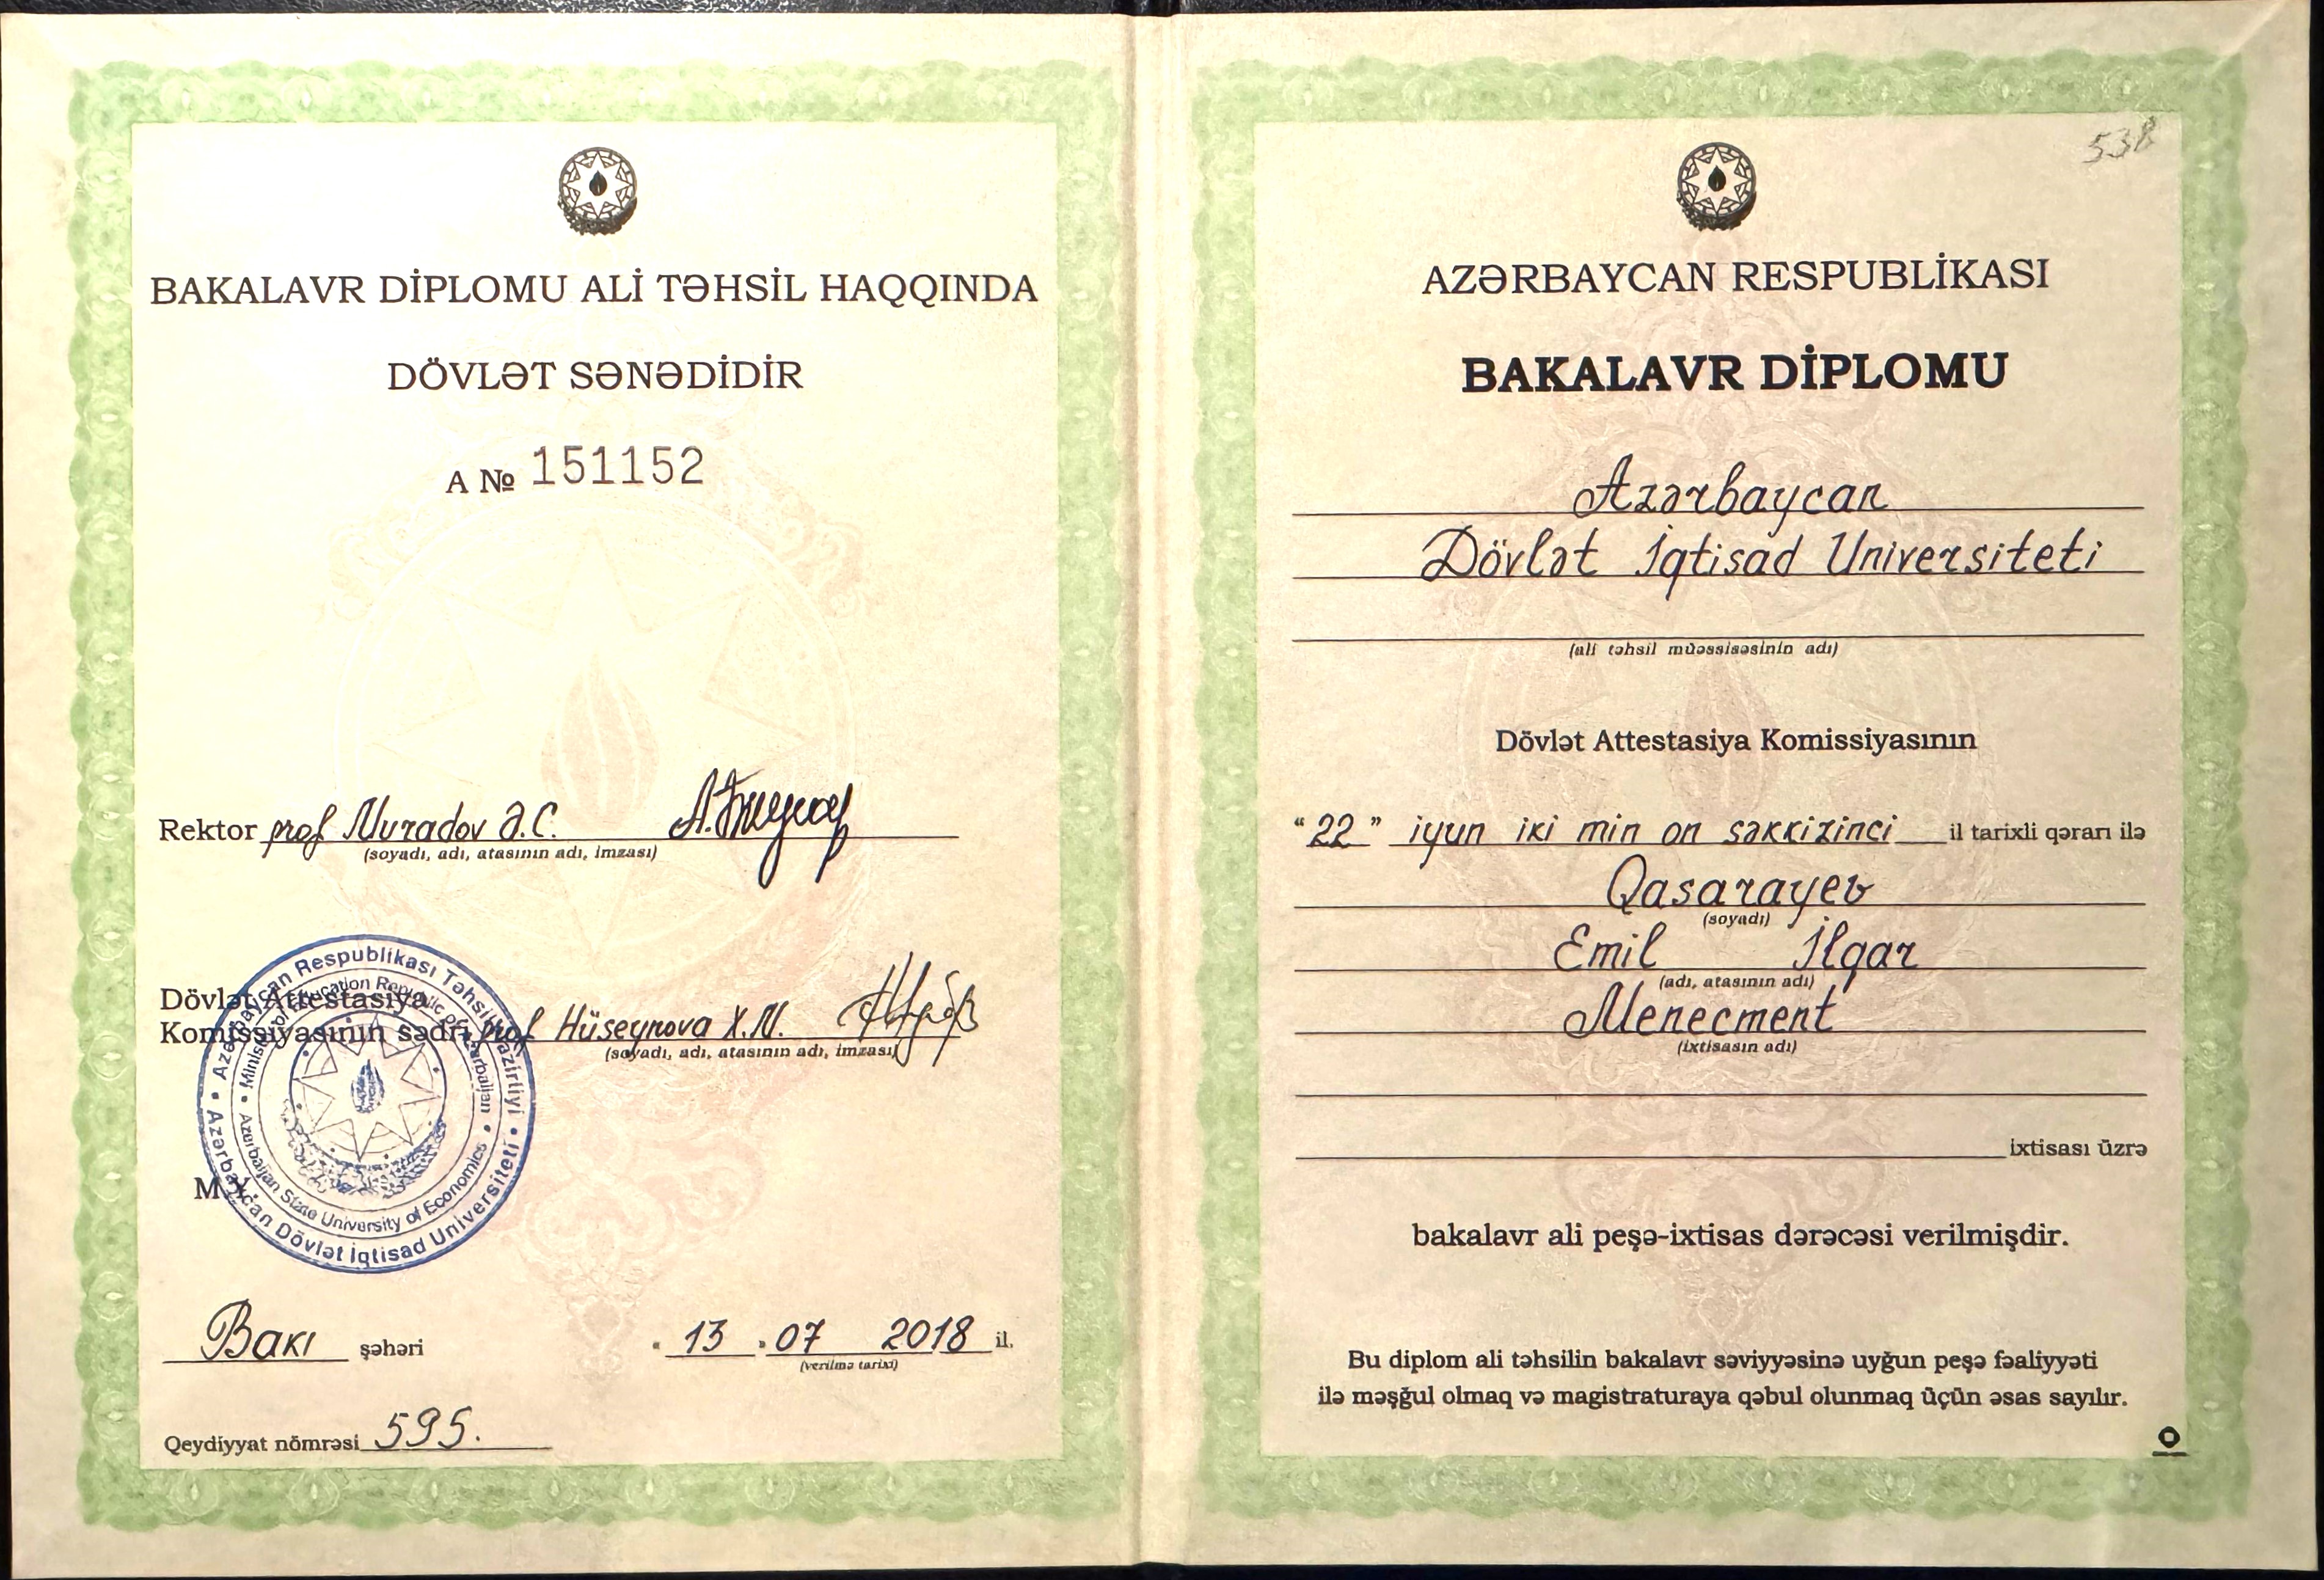 BAKALAVR DİPLOMU ALİ TƏHSİL HAQQINDA
DÖVLƏT SƏNƏDİDİR
A № 151152
Rektor prof Muradov Ə.C.
(soyadı, adı, atasının adı, imzası)
Dövlət Attestasiya
Komissiyasının sədri prof Hüseynova X.M.
(soyadı, adı, atasının adı, imzası)
Azərbaycan Respublikası Təhsil Nazirliyi • Azərbaycan Dövlət İqtisad Universiteti •
Ministry of Education Republic of Azerbaijan • Azerbaijan State University of Economics •
M.Y.
Bakı şəhəri
" 13 " 07 2018 il.
(verilmə tarixi)
Qeydiyyat nömrəsi 595.
538
AZƏRBAYCAN RESPUBLİKASI
BAKALAVR DİPLOMU
Azərbaycan
Dövlət İqtisad Universiteti
(ali təhsil müəssisəsinin adı)
Dövlət Attestasiya Komissiyasının
"22" iyun iki min on səkkizinci il tarixli qərarı ilə
Qasarayev
(soyadı)
Emil İlqar
(adı, atasının adı)
Menecment
(ixtisasın adı)
ixtisası üzrə
bakalavr ali peşə-ixtisas dərəcəsi verilmişdir.
Bu diplom ali təhsilin bakalavr səviyyəsinə uyğun peşə fəaliyyəti
ilə məşğul olmaq və magistraturaya qəbul olunmaq üçün əsas sayılır.